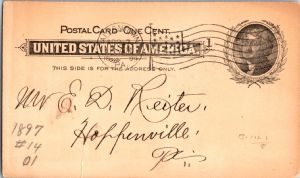 POSTAL CARD - ONE CENT.
UNITED STATES OF AMERICA.
THIS SIDE IS FOR THE ADDRESS ONLY.
PA.
Mr E. D. Reiter,
Hoppenville,
Pa.
1897
#14
01